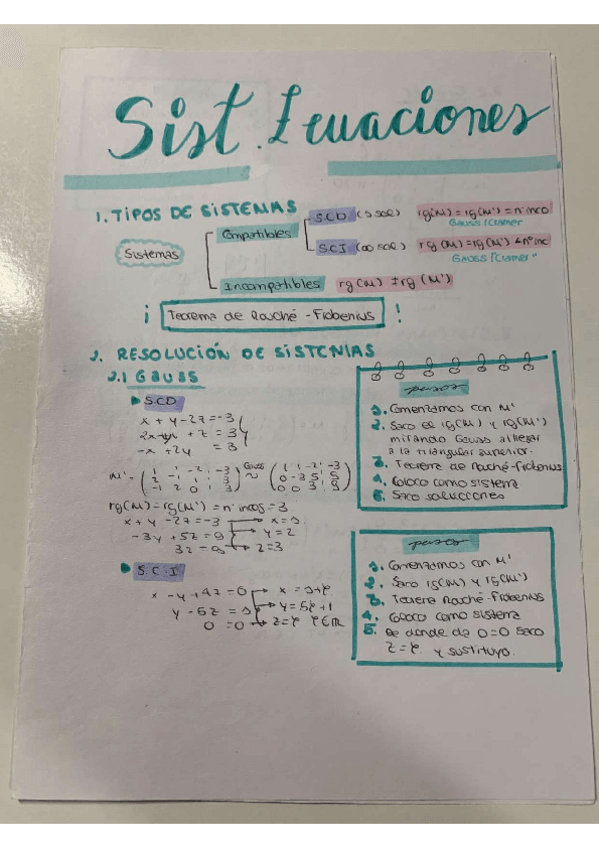 Sist. Ecuaciones
1. TIPOS DE SISTEMAS
Sistemas
Compatibles
S.C.D (1 sol) rg(M) = rg(M') = nº inco
Gauss/Cramer
S.C.I (∞ sol) rg(M) = rg(M') ≠ nº inc
Gauss/"Cramer"
Incompatibles rg(M) ≠ rg(M')
¡ Teorema de Rouché-Frobenius !
2. RESOLUCIÓN DE SISTEMAS
2.1 GAUSS
S.C.D
x + y - 2z = -3
+ z = 3
-x + 2y = 3
M' = Gauss ~
rg(M) = rg(M') = nº incog = 3
x + y - 2z = -3 → x = 1
-3y + 5z = 9 → y = 2
3z = 9 → z = 3
pasos
1. Comenzamos con M'
2. Saco el rg(M) y rg(M')
mirando Gauss al llegar
a la triangular superior.
3. Teorema de Rouché-Frobenius
4. Coloco como sistema
5. Saco soluciones
S.C.I
x - y + 4z = 0
y - 5z = 1 → y = 5
0 = 0 → z =
pasos
1. Comenzamos con M'
2. Saco rg(M) y rg(M')
3. Teorema Rouché-Frobenius
4. Coloco como sistema
5. De donde da 0=0 saco
z = y sustituyo.